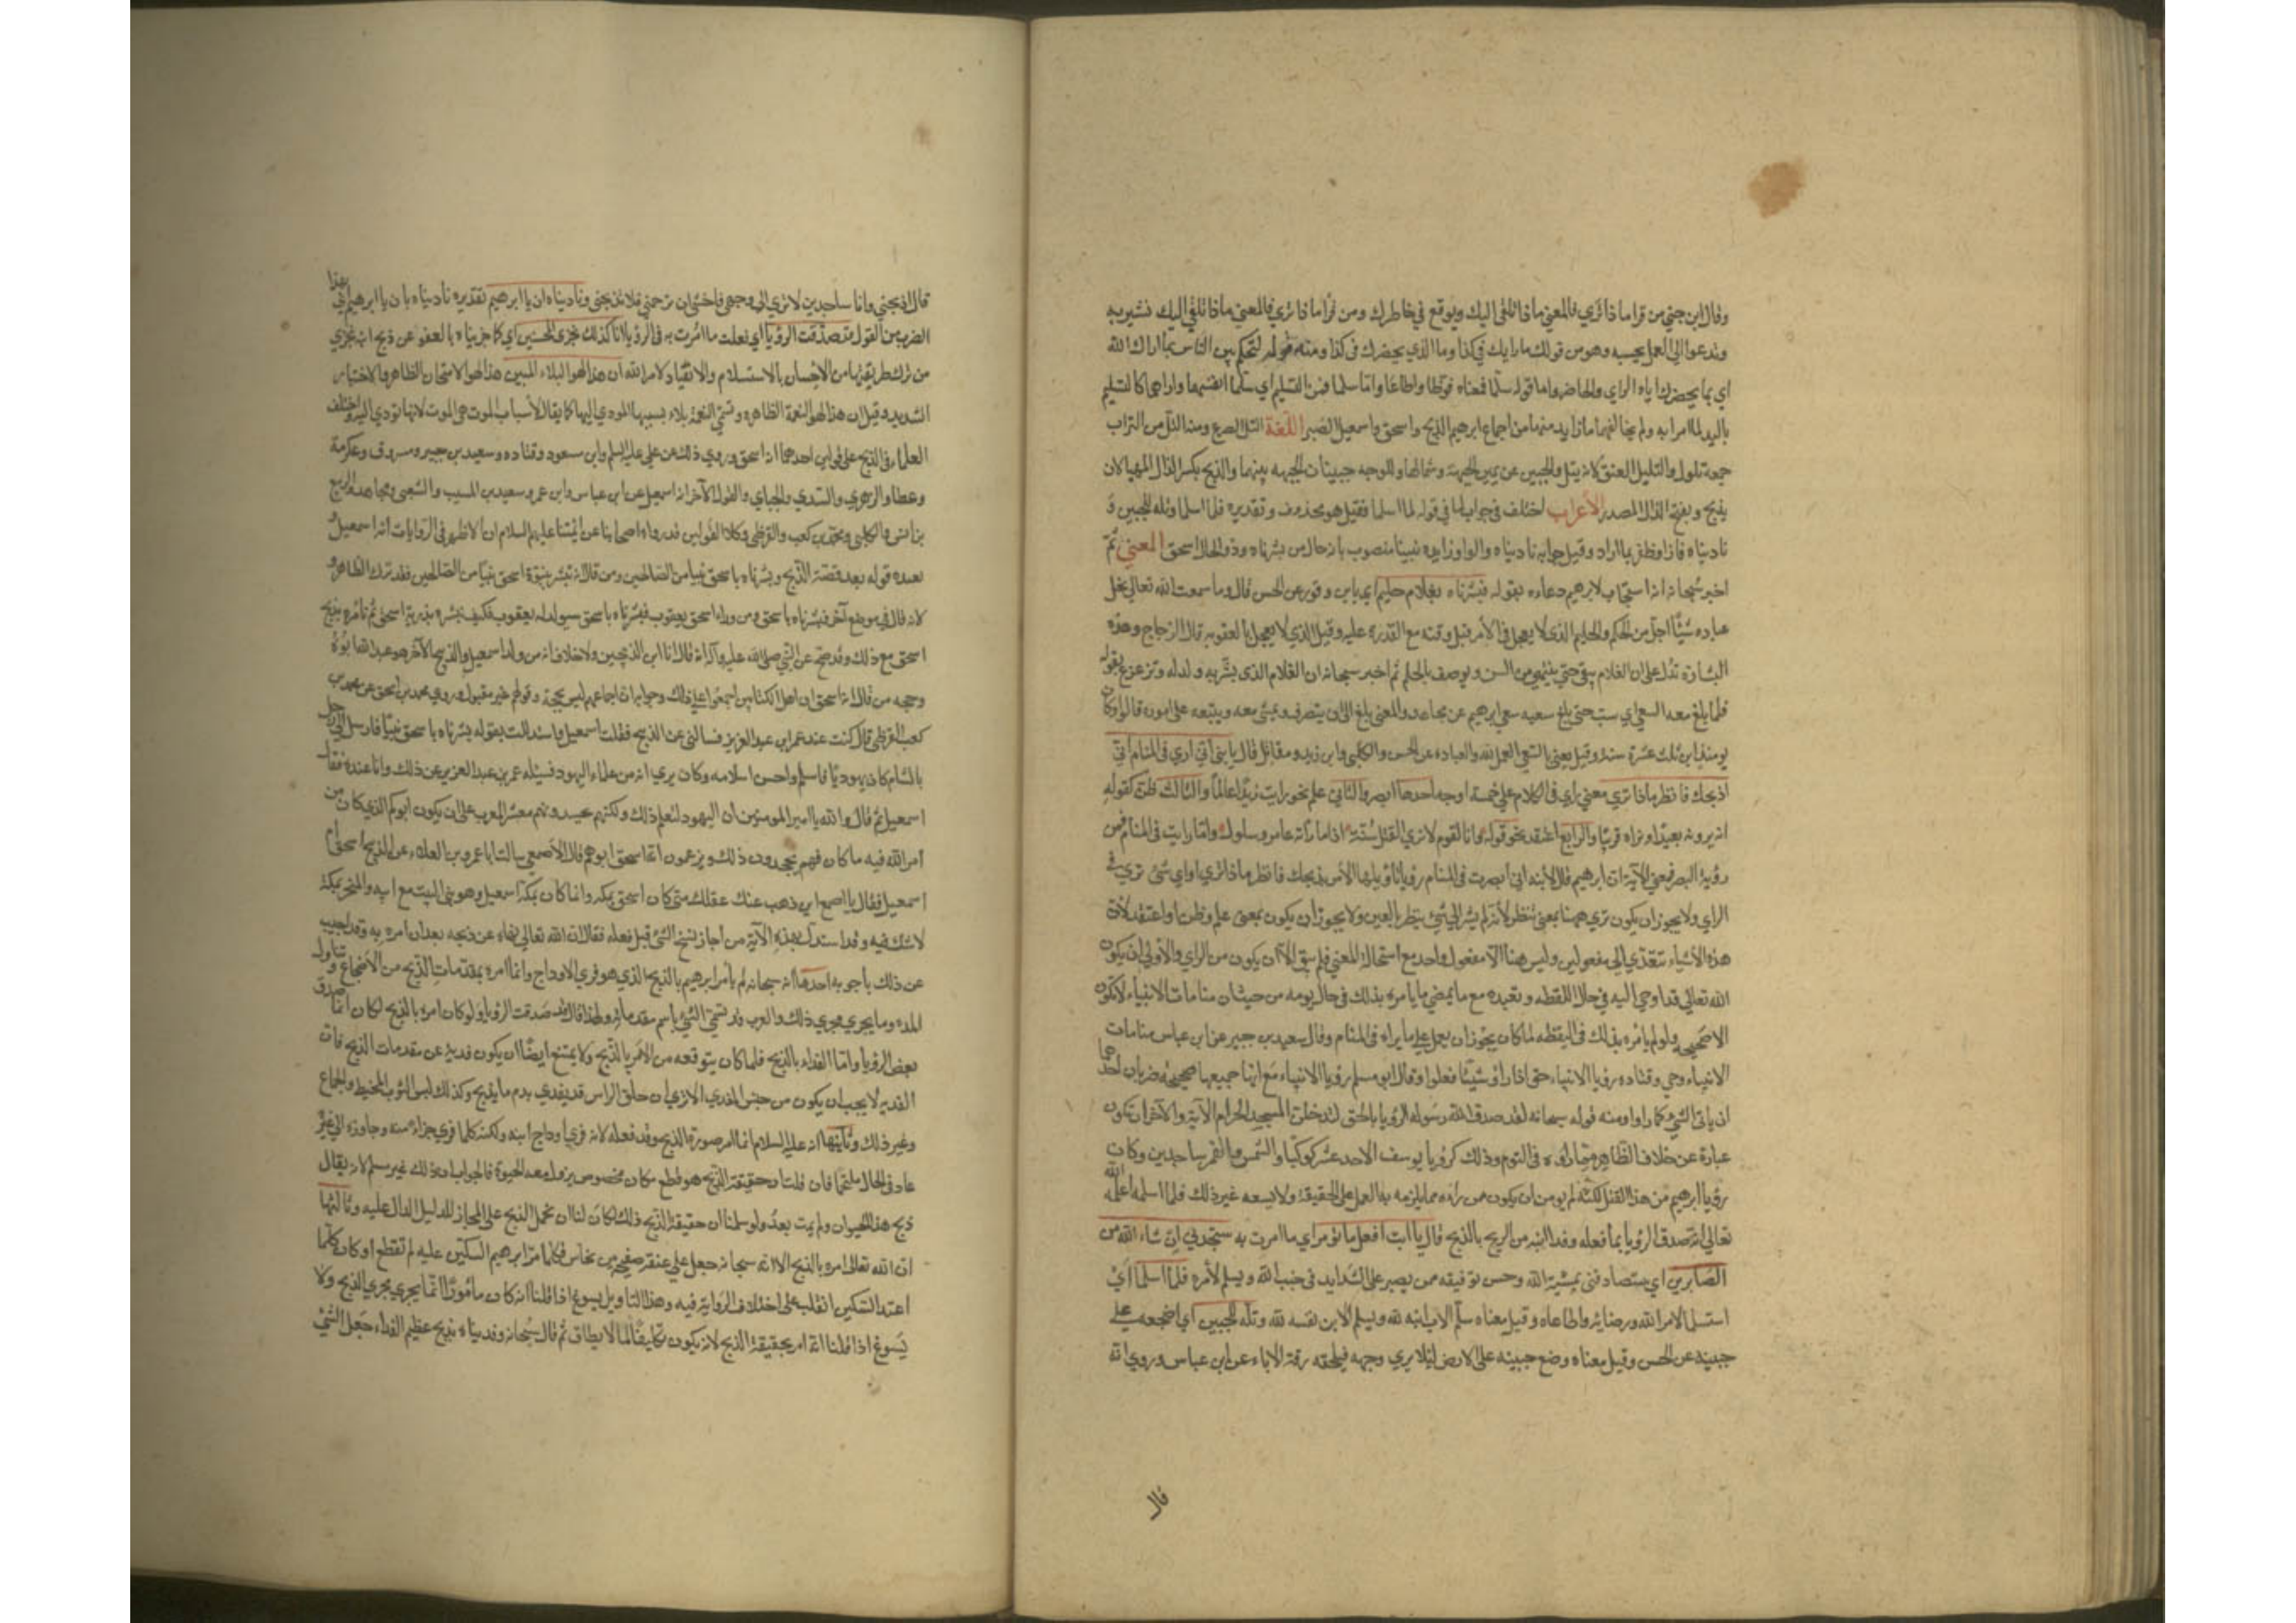 وقال ابن جني من قرا ماذا تري فالمعني ماذا تلقى اليك ويوقع في خاطرك ومن قرا ماذا تري فالمعني ماذا تلقي اليك نشير به
وتدعوا الي العمل بحسبه وهو من قولك ما رايك في كذا وما الذي يحضرك في كذا ومنه قوله لتحكم بين الناس بما اراك الله
اي بما يحضرك اياه الراي والخاطر واما قوله سلما فمعناه فوضا واطاعا واما سلما فمن التسليم اي سلما انفسهما واراهما كالتسليم
باليد لما امرا به ولم يخالفا ما اريد منهما من اجماع ابرهيم الذبح واسحق واسمعيل الصبر اللغة التل الصرع ومنه التل من التراب
جمعه تلول والتليل العنق لانه يتل والجبين عن يمين الجبهة وشمالها وللوجه جبينان الجبهه بينهما والذبح بكسر الذال المهيا لان
يذبح وبفتح الذال المصدر الأعراب اختلف في جواب لما في قوله لما اسلما فقيل هو محذوف وتقديره فلما اسلما وتله للجبين و
ناديناه فازا وظفر بما اراد وقيل جوابه ناديناه والواو زايده نبيا منصوب بانه حال من بشرناه وذو الحال اسحق المعني ثم
اخبر سبحانه انه استجاب لابرهيم دعاءه بقوله فبشرناه بغلام حليم اي بابن وقور عن الحسن قال وما سمعت الله تعالي نحل
عباده شيئا اجل من الحلم والحليم الذي لا يعجل في الأمر قبل وقته مع القدرة عليه وقيل الذي لا يعجل بالعقوبه قال الزجاج وهذه
البشارة تدل علي ان الغلام يبقى حتي ينتهي من السن ويوصف بالحلم ثم اخبر سبحانه ان الغلام الذي بشر به ولد له وترعرع بقوله
فلما بلغ معه السعي اي شب حتي بلغ سعيه سعي ابرهيم عن مجاهد والمعني بلغ الى ان يتصرف ويمشي معه ويتبعه على اموره قالوا وكان
يومئذ ابن ثلث عشرة سنة وقيل يعني بالسعي العمل لله والعباده عن الحسن والكلبي وابن زيد ومقاتل قال يا بني اني اري في المنام اني
اذبحك فانظر ماذا تري معني راي في الكلام علي خمسة اوجه احدها ابصر والثاني علم نحو رايت زيدا عالما والثالث ظن كقوله
انهم يرونه بعيدا ونراه قريبا والرابع اعتقد نحو قوله وانا لقوم لا نري القتل سبة اذا ما راته عامر وسلول واما رايت في المنام فمن
رؤية البصر فمعني الآية ان ابرهيم قال لابنه اني ابصرت في المنام رؤيا تاويلها الأمر بذبحك فانظر ماذا تري او اي شئ تري في
الراي ولا يجوز ان يكون تري ههنا بمعني تنظر لأنه لم يشر الي شئ ينظر بالعين ولا يجوز ان يكون بمعنى علم وظن او اعتقد لأن
هذه الأشياء تتعدي الي مفعولين وليس هنا الا مفعول واحد مع استحالة المعني فلم يبق الا ان يكون من الراي والأولي ان يكون
الله تعالي قد اوحي اليه في حال اليقظه وتعبده مع ما يمضي ما يامره بذلك في حال نومه من حيث ان منامات الانبياء لا تكون
الا صحيحه ولو لم يامره بذلك في اليقظه لما كان يجوز ان يعمل علي ما يراه في المنام وقال سعيد بن جبير عن ابن عباس منامات
الانبياء وحي وقتاده رؤيا الانبياء حق اذا راوا شيئا فعلوا وقال ابو مسلم رؤيا الانبياء مع انها جميعها صحيحه ضربان احدهما
ان ياتي الشئ كما راوا ومنه قوله سبحانه لقد صدق الله رسوله الرؤيا بالحق لتدخلن المسجد الحرام الآية والآخر ان تكون
عبارة عن خلاف الظاهر مما راوه في النوم وذلك كرؤيا يوسف الاحد عشر كوكبا والشمس والقمر ساجدين وكان
رؤيا ابرهيم من هذا القبل لكنه لم يومن ان يكون ممن راه مما يلزمه به العمل علي الحقيقة ولا يسعه غير ذلك فلما اسلما اعلمه الله
تعالي انه صدق الرؤيا بما فعله وفدا ابنه من الذبح بالذبح قال يا ابت افعل ما تؤمر اي ما امرت به ستجدني ان شاء الله من
الصابرين اي ستصادفني بمشية الله وحسن توفيقه ممن يصبر على الشدايد في جنب الله ويسلم لأمره فلما اسلما اي
استسلما لامر الله ورضيا به واطاعاه وقيل معناه سلم الاب ابنه لله ويسلم الابن نفسه لله وتله للجبين اي اضجعه علي
جبينه عن الحسن وقيل معناه وضع جبينه على الارض ليلا يري وجهه فيلحقه رقة الاباء عن ابن عباس وروي انه
قال
قال اذبحني وانا ساجد بن لا تري الي وجهي فاخشي ان ترحمني فلا تذبحني وناديناه ان يا ابرهيم تقديره ناديناه بان يا ابرهيم اي هذا
الضرب من القول قد صدقت الرؤيا اي فعلت ما امرت به في الرؤيا انا كذلك نجزي المحسنين اي كما جزيناه بالعفو عن ذبح ابنه نجزي
من سلك طريقهما من الاحسان بالاستسلام والانقياد لامر الله ان هذا لهو البلاء المبين هذا لهو الامتحان الظاهر والاختبار
الشديد وقيل ان هذا لهو النعمة الظاهره وتسمي النعمة بلاء بسببها المودي اليها كما يقال لأسباب الموت هي الموت لانها تودي اليه واختلف
العلماء في الذبيح على قولين احدهما انه اسحق وروي ذلك عن علي عليه السلم وابن مسعود وقتاده وسعيد بن جبير ومسروق وعكرمة
وعطا والزهري والسدي والجباي والقول الآخر انه اسمعيل عن ابن عباس وابن عمر وسعيد بن المسيب والشعبي ومجاهد والربيع
بن انس والكلبي ومحمد بن كعب والقرظي وكلا القولين قد رواه اصحابنا عن ائمتنا عليهم السلام ان الاظهر في الروايات انه اسمعيل
بعده قوله بعد قصة الذبح وبشرناه باسحق نبيا من الصالحين ومن قال انه بشر بنبوة اسحق نبيا من الصالحين فقد ترك الظاهر و
لانه قال في موضع آخر فبشرناه باسحق ومن وراء اسحق يعقوب فبشرناه باسحق سيولد له يعقوب فكيف بشره بذرية اسحق ثم تامره بذبح
اسحق مع ذلك وقد صح عن النبي صلى الله عليه وآله انه قال انا ابن الذبيحين ولا خلاف انه من ولد اسمعيل والذبيح الآخر هو عبد الله ابوه
وحجه من قال انه اسحق ان اهل الكتابين اجمعوا علي ذلك وجوابه ان اجماعهم ليس بحجة وقولهم غير مقبول وروي محمد بن اسحق عن محمد بن
كعب القرظي قال كنت عند عمر ابن عبد العزيز فسالني عن الذبيح فقلت اسمعيل واستدللت بقوله بشرناه باسحق نبيا فارسل الي رجل
بالشام كان يهوديا فاسلم واحسن اسلامه وكان يري انه من علماء اليهود فسئله عمر بن عبد العزيز عن ذلك وانا عنده فقال
اسمعيل ثم قال والله يا امير المومنين ان اليهود لتعلم ذلك ولكنهم يحسدونكم معشر العرب على ان يكون ابوكم الذي كان من
امر الله فيه ما كان فهم يجحدون ذلك ويزعمون انه اسحق ابوهم قال الأصمعي سالت ابا عمرو بن العلاء عن الذبيح اسحق ام
اسمعيل فقال يا اصمعي اين ذهب عنك عقلك متي كان اسحق بمكه وانما كان بمكة اسمعيل وهو بني البيت مع ابيه والمنحر بمكة
لا شك فيه وقد استدل بهذه الآية من اجاز نسخ الشئ قبل فعله فقال ان الله تعالي نهاه عن ذبحه بعد ان امره به وقد اجيب
عن ذلك بأجوبه احدها انه سبحانه لم يأمر ابرهيم بالذبح الذي هو فري الاوداج وانما امره بمقدمات الذبح من الأضجاع وتناول
المدة وما يجري مجري ذلك والعرب قد تسمي الشئ باسم مقدماته ولهذا قال قد صدقت الرؤيا ولو كان امره بالذبح لكان انما صدق
بعض الرؤيا واما الفداء بالذبح فلما كان يتوقعه من الامر بالذبح ولا يمتنع ايضا ان يكون فدية عن مقدمات الذبح فان
الفديه لا يجب ان يكون من جنس المفدي الا تري ان حلق الراس قد يفدي بدم ما يذبح وكذلك لبس الثوب المخيط والجماع
وغير ذلك وثانيها انه عليه السلام انما امر بصورة الذبح وقد فعله لانه فري اوداج ابنه ولكنه كلما فري جزاء منه وجاوزه الي غيره
عاد في الحال ملتحما فان قلت ان حقيقة الذبح هو قطع مكان مخصوص يزول معه الحيوة فالجواب ان ذلك غير مسلم لانه يقال
ذبح هذا الحيوان ولم يمت بعد ولو سلمنا ان حقيقة الذبح ذلك لكان لنا ان نحمل الذبح على المجاز للدليل الدال عليه وثالثها
ان الله تعالى امره بالذبح الا انه سبحانه جعل علي عنقه صفيحة من نحاس فكلما امر ابرهيم السكين عليه لم تقطع او كان كلما
اعتمد السكين انقلب على اختلاف الرواية فيه وهذا التاويل يسوغ اذا قلنا انه كان مأمورا انما يجري مجري الذبح ولا
يسوغ اذا قلنا انه امر بحقيقة الذبح لانه يكون تكليفا لما لا يطاق ثم قال سبحانه وفديناه بذبح عظيم الفداء جعل الشئ